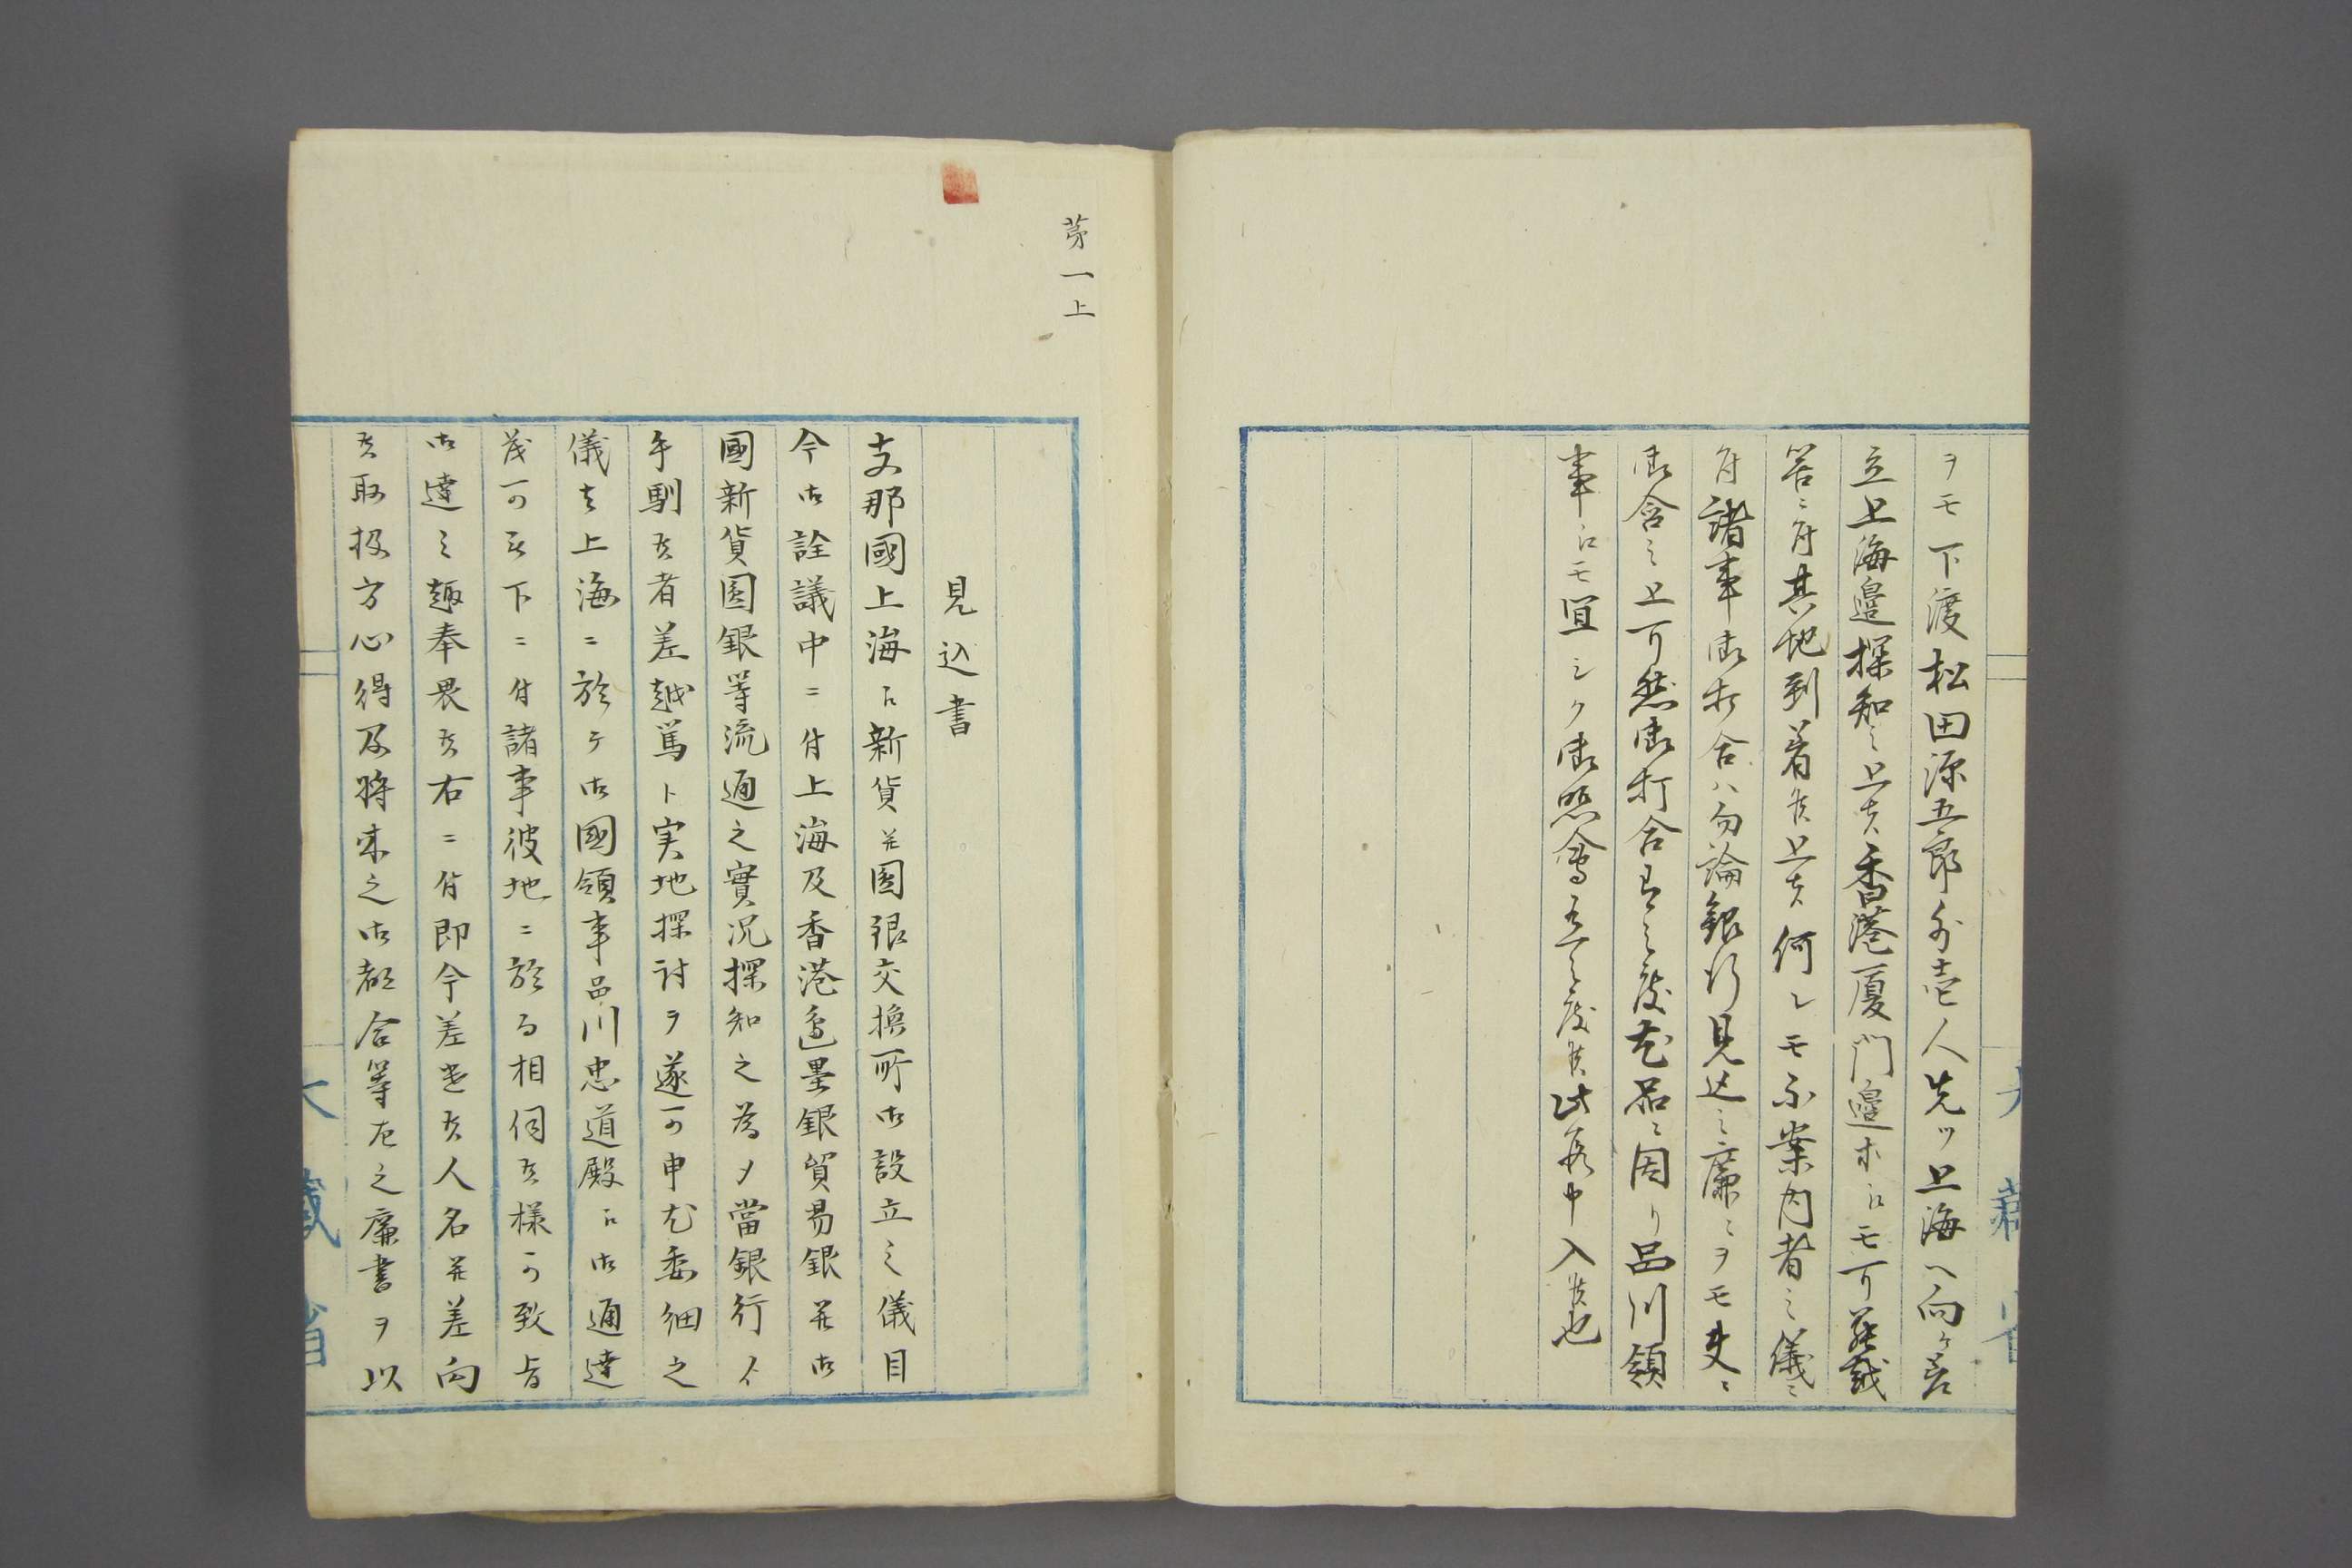 ヲモ下渡松田源五郎外壱人先ツ上海ヘ向ケ差
立上海邊探知之上ハ香港厦門邊ホ江モ可差越
筈ニ付其地到着候上ハ何レモ不案内者之儀ニ
付諸事御打合ハ勿論銀行見込之廉ニヲモ夫ニ
御含之上可然御打合有之度尤品ニ因リ品川領
事江モ宜シク御照會有之度候此段申入候也
大藏省
第一上
見込書
支那國上海江新貨幷圓銀交換所御設立之儀目
今御詮議中ニ付上海及香港邊墨銀貿易銀幷御
國新貨圓銀等流通之實況探知之為メ當銀行ゟ
手馴候者差越篤ト実地探討ヲ遂可申尤委細之
儀者上海ニ於テ御國領事品川忠道殿江御通達
茂可被下ニ付諸事彼地ニ於而相伺候様可致旨
御達之趣奉畏候右ニ付即今差遣候人名幷差向
候取扱方心得及将来之御都合等左之廉書ヲ以
大藏省